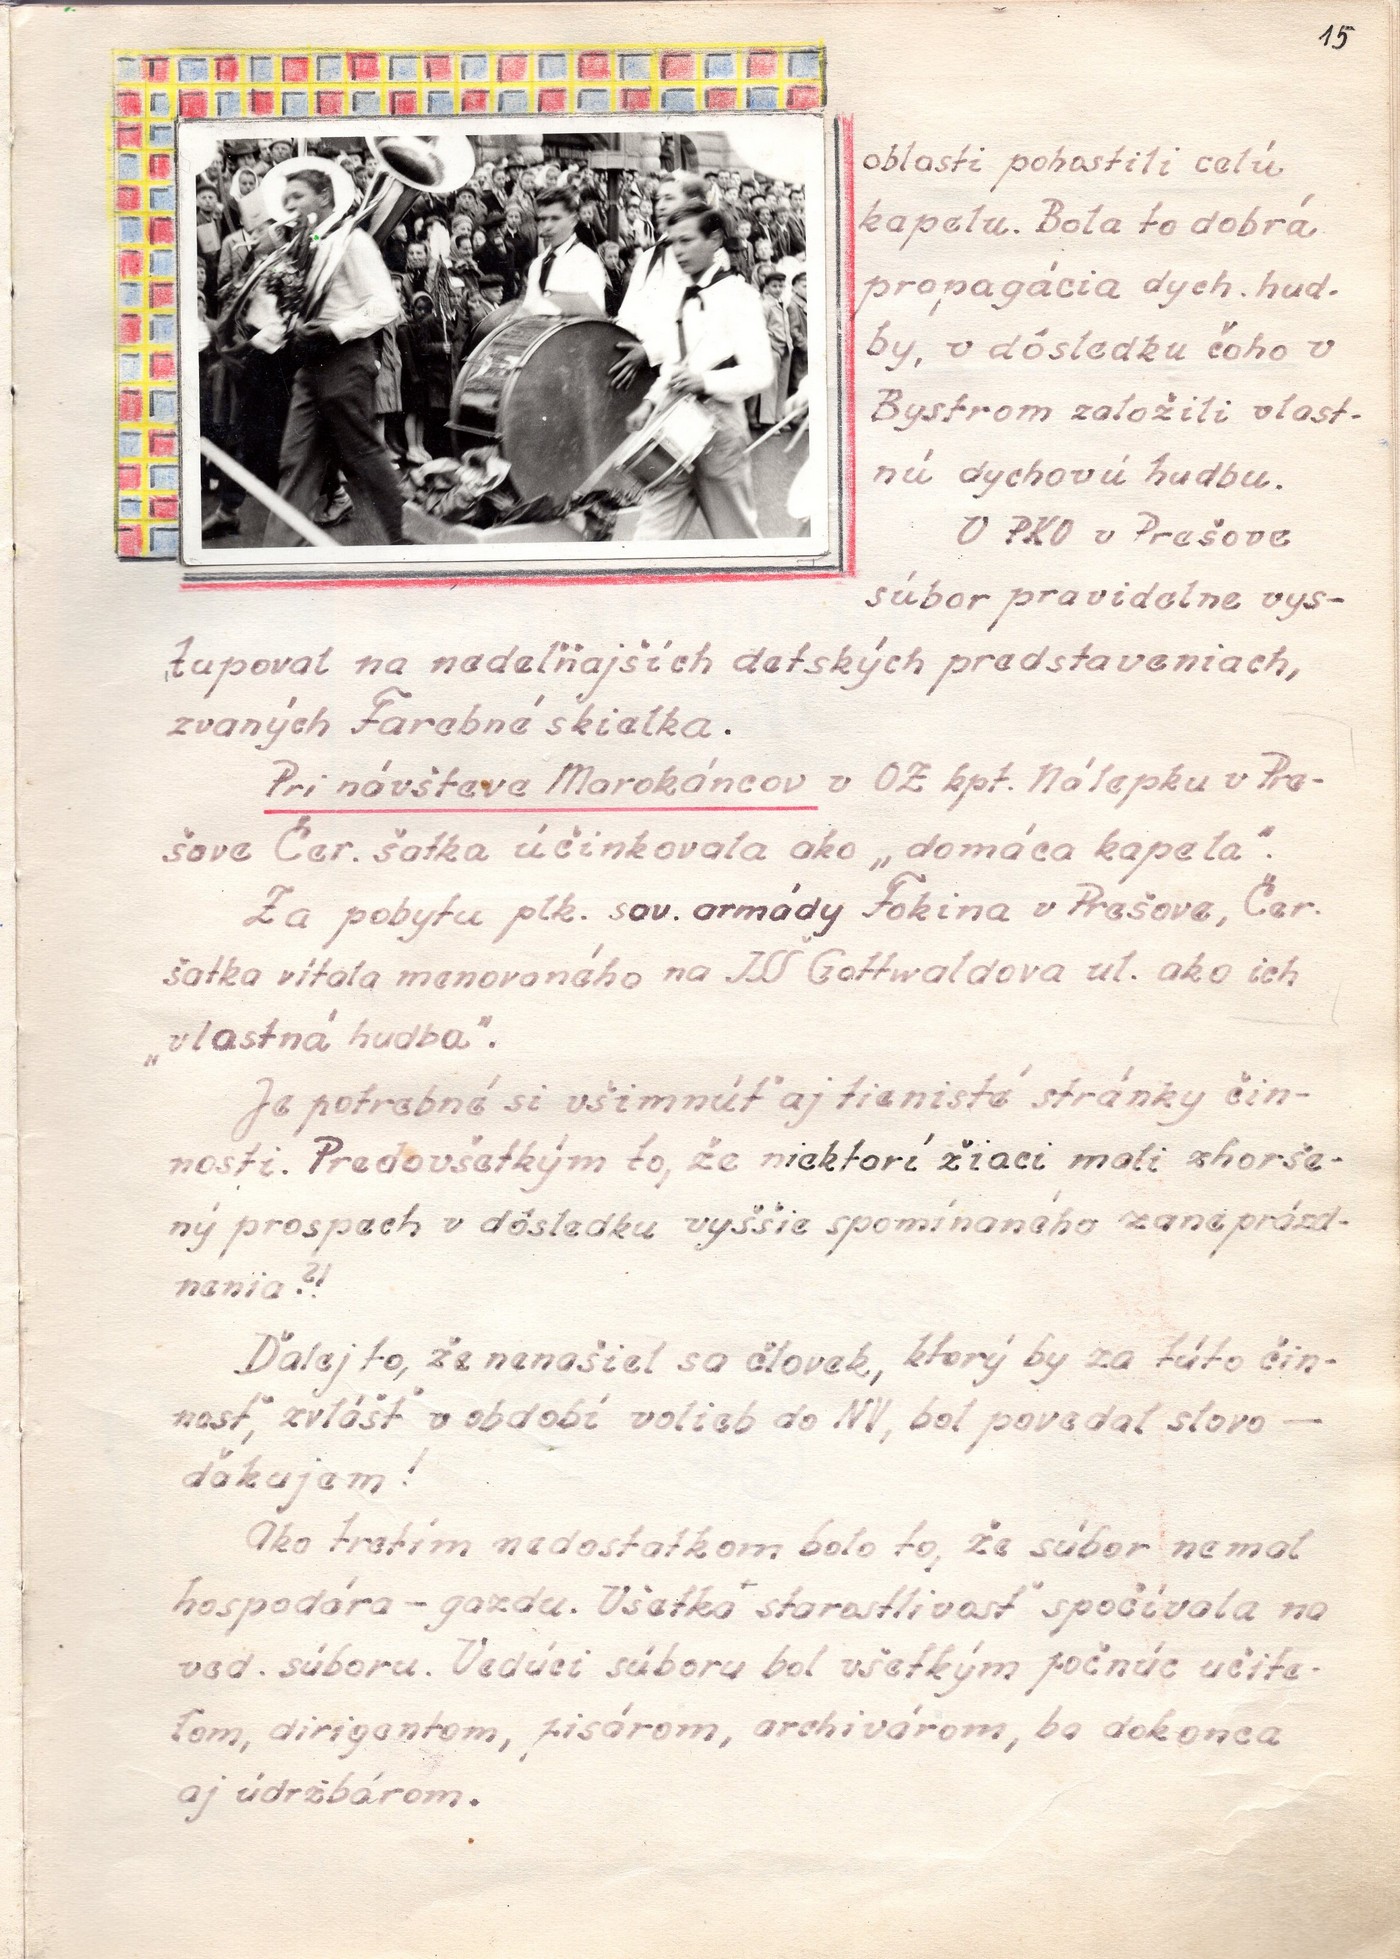 15
oblasti pohostili celú
kapelu. Bola to dobrá
propagácia dych. hud-
by, v dôsledku čoho v
Bystrom založili vlast-
nú dychovú hudbu.
V PKO v Prešove
súbor pravidelne vys-
tupoval na nedeľňajších detských predstaveniach,
zvaných Farebné skielka.
Pri návšteve Marokáncov v OZ kpt. Nálepku v Pre-
šove Čer. šatka účinkovala ako „domáca kapela".
Za pobytu plk. sov. armády Fokina v Prešove, Čer.
šatka vítala menovaného na JSŠ Gottwaldova ul. ako ich
„vlastná hudba".
Je potrebné si všimnúť aj tienisté stránky čin-
nosti. Predovšetkým to, že niektorí žiaci mali zhorše-
ný prospech v dôsledku vyššie spomínaného zaneprázd-
nenia?!
Ďalej to, že nenašiel sa človek, ktorý by za túto čin-
nosť, zvlášť v období volieb do NV, bol povedal slovo —
ďakujem!
Ako tretím nedostatkom bolo to, že súbor nemal
hospodára - gazdu. Všetka starostlivosť spočívala na
ved. súboru. Vedúci súboru bol všetkým počnúc učite-
ľom, dirigentom, pisárom, archivárom, ba dokonca
aj údržbárom.